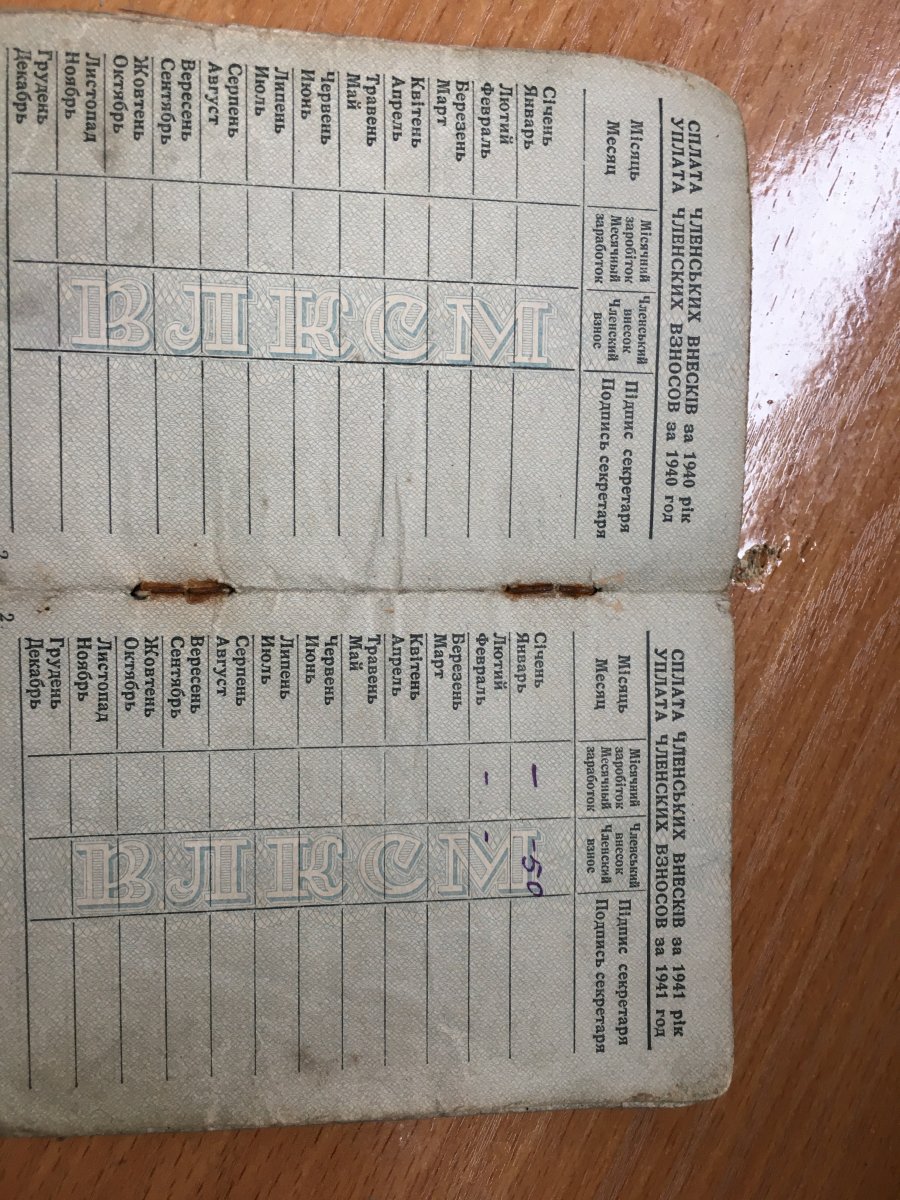 СПЛАТА ЧЛЕНСЬКИХ ВНЕСКІВ за 1940 рік
УПЛАТА ЧЛЕНСКИХ ВЗНОСОВ за 1940 год
Місяць
Месяц
Місячний
заробіток
Месячный
заработок
Членський
внесок
Членский
взнос
Підпис секретаря
Подпись секретаря
Січень
Январь
Лютий
Февраль
Березень
Март
Квітень
Апрель
Травень
Май
Червень
Июнь
Липень
Июль
Серпень
Август
Вересень
Сентябрь
Жовтень
Октябрь
Листопад
Ноябрь
Грудень
Декабрь
ВЛКСМ
2
СПЛАТА ЧЛЕНСЬКИХ ВНЕСКІВ за 1941 рік
УПЛАТА ЧЛЕНСКИХ ВЗНОСОВ за 1941 год
Місяць
Месяц
Місячний
заробіток
Месячный
заработок
Членський
внесок
Членский
взнос
Підпис секретаря
Подпись секретаря
Січень
Январь
— -50
Лютий
Февраль
- -
Березень
Март
Квітень
Апрель
Травень
Май
Червень
Июнь
Липень
Июль
Серпень
Август
Вересень
Сентябрь
Жовтень
Октябрь
Листопад
Ноябрь
Грудень
Декабрь
ВЛКСМ